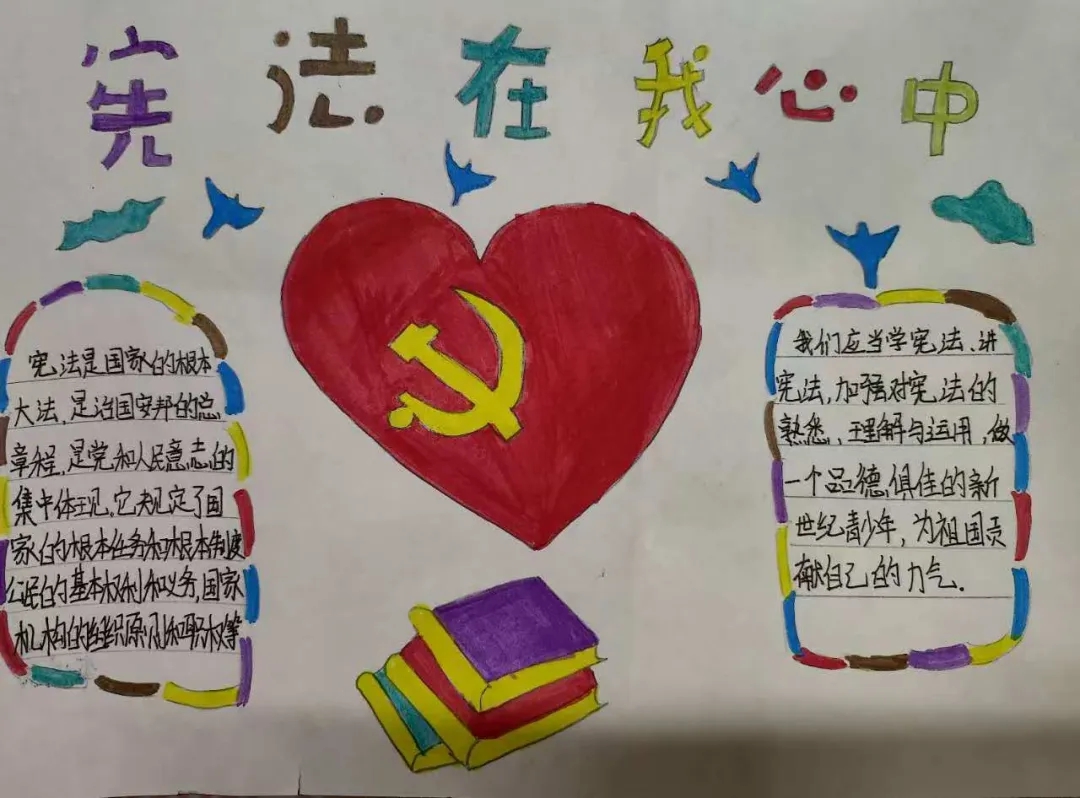 宪法在我心中
宪法是国家的根本
大法,是治国安邦的总
章程,是党和人民意志的
集中体现,它规定了国
家的根本任务和根本制度
公民的基本权利和义务,国家
机构的组织原则和职权等
我们应当学宪法、讲
宪法,加强对宪法的
熟悉、理解与运用,做
一个品德俱佳的新
世纪青少年,为祖国贡
献自己的力气.